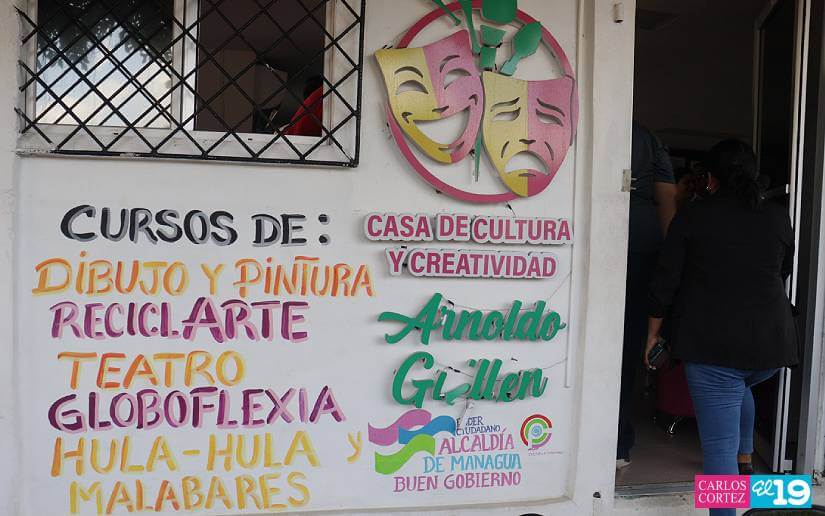 CURSOS DE:
DIBUJO Y PINTURA
RECICLARTE
TEATRO
GLOBOFLEXIA
HULA-HULA Y
MALABARES
CASA DE CULTURA
Y CREATIVIDAD
Arnoldo
Guillen
PODER
CIUDADANO
ALCALDÍA
DE MANAGUA
BUEN GOBIERNO
CARLOS
CORTEZ
El 19